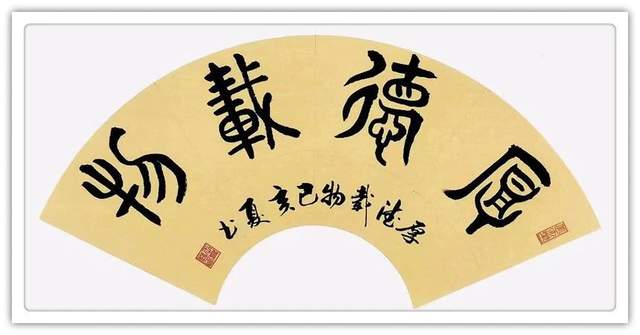 厚德載物
厚德載物己亥夏书